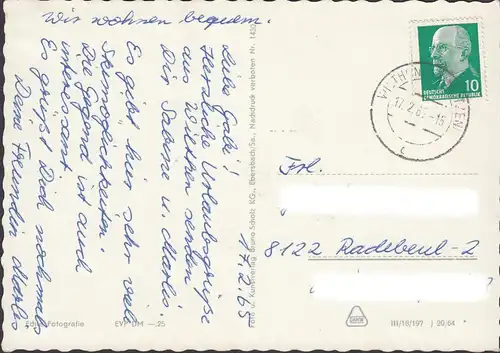 Wir wohnen bequem.
17.2.65
Liebe Gabi!
Herzliche Urlaubsgrüße
aus Wilthen senden
Dir Sabine u. Marlis.
Es gibt hier sehr viel
Skimöglichkeiten.
Die Gegend ist auch
interessant.
Es grüßt Dich nochmals
Deine Freundin Marlis
Echte Fotografie
EVP DM —.25
Foto u. Kunstverlag Bruno Scholz KG., Ebersbach/Sa., Nachdruck verboten Nr.
10
DEUTSCHE
DEMOKRATISCHE REPUBLIK
WILTHEN
17.2.65-16
c
Frl.
8122 Radebeul-2
III/18/197 J 20/64